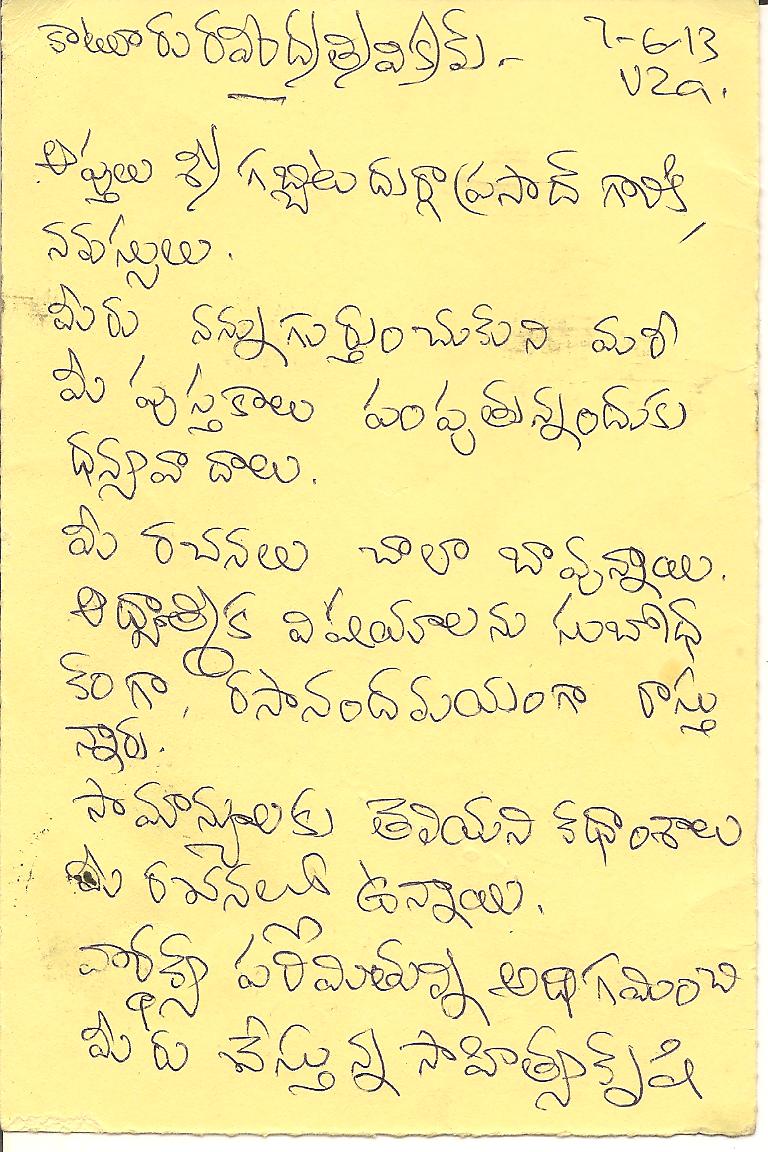 కాటూరు రవీంద్ర త్రివిక్రమ్. -
7-6-13
VZa.
ఆప్తులు శ్రీ గబ్బిట దుర్గాప్రసాద్ గారికి,
నమస్సులు.
మీరు నన్ను గుర్తుంచుకుని మరీ
మీ పుస్తకాలు పంపుతున్నందుకు
ధన్యవాదాలు.
మీ రచనలు చాలా బావున్నాయి.
ఆధ్యాత్మిక విషయాలను సుబోధ
కంగా, రసానందమయంగా రాస్తు
న్నారు.
సామాన్యులకు తెలియని కథాంశాలు
మీ రచనలలో ఉన్నాయి.
పరిమితుల్ని అధిగమించి
మీరు చేస్తున్న సాహిత్యకృషి